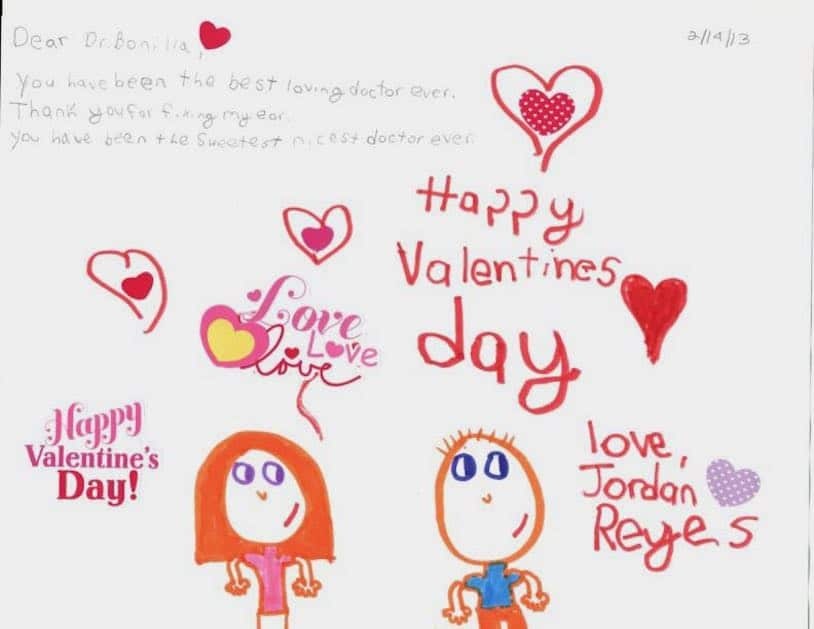 Dear Dr. Bonilla,
2/14/13
You have been the best loving doctor ever.
Thank you for fixing my ear.
You have been the sweetest nicest doctor ever.
Happy
Valentines
day
Love
Love
love
Happy
Valentine's
Day!
love,
Jordan
Reyes